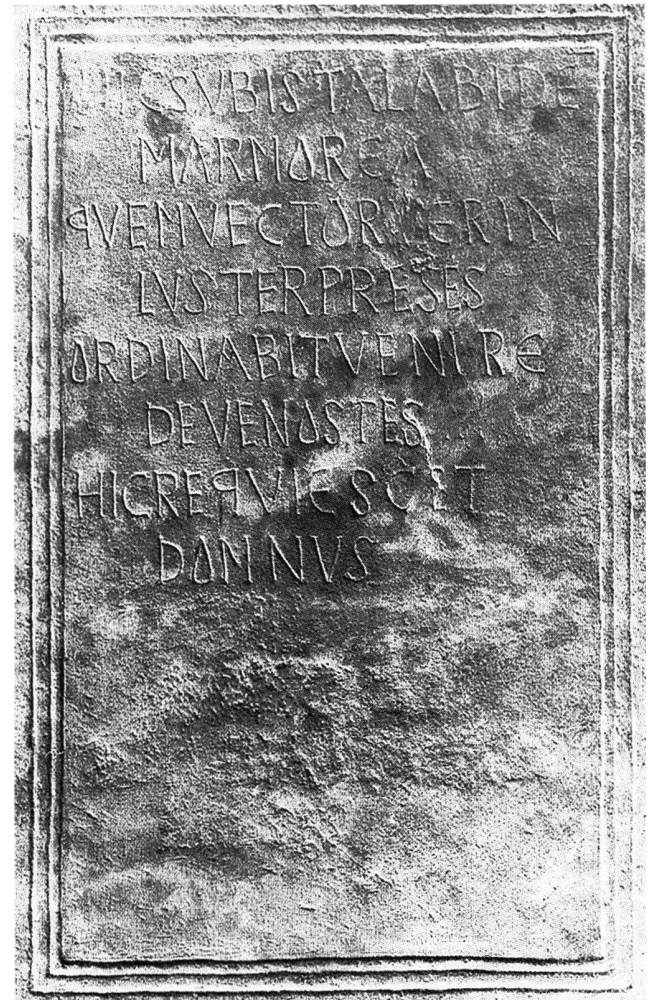 HICSVBISTALABIDE
MARMOREA
QVEMVECTORVERIN
LVSTERPRESES
ORDINABITVENIRE
DEVENOSTES
HICREQVIESCET
DOMNVS